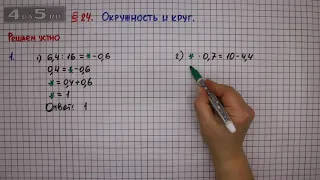 4 5.NET
§ 24. Окружность и круг.
Решаем устно
1. 1) 6,4 : 16 = * - 0,6
0,4 = * - 0,6
* = 0,4 + 0,6
* = 1
Ответ: 1
2) * · 0,7 = 10 - 4,4